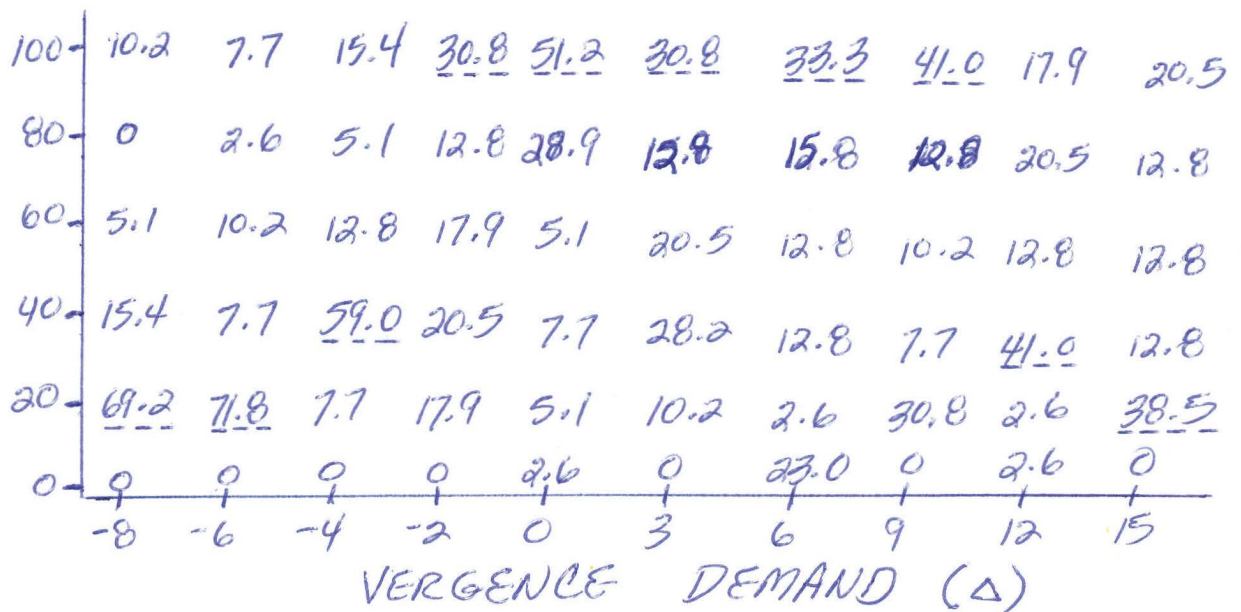 100 10.2 7.7 15.4 30.8 51.2 30.8 33.3 41.0 17.9 20.5
80 0 2.6 5.1 12.8 28.9 12.8 15.8 12.8 20.5 12.8
60 5.1 10.2 12.8 17.9 5.1 20.5 12.8 10.2 12.8 12.8
40 15.4 7.7 59.0 20.5 7.7 28.2 12.8 7.7 41.0 12.8
20 69.2 71.8 7.7 17.9 5.1 10.2 2.6 30.8 2.6 38.5
0 0 0 0 0 2.6 0 23.0 0 2.6 0
-8 -6 -4 -2 0 3 6 9 12 15
VERGENCE DEMAND (Δ)